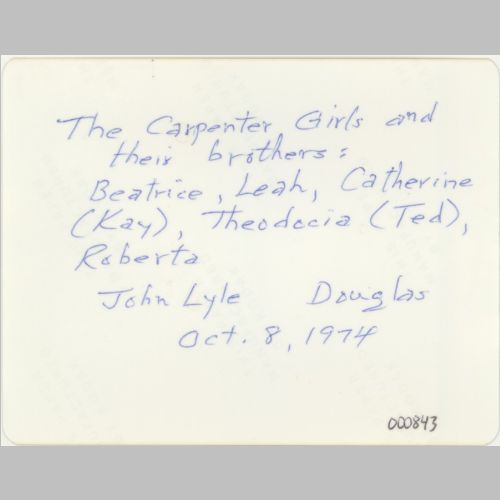 The Carpenter Girls and
their brothers:
Beatrice, Leah, Catherine
(Kay), Theodocia (Ted),
Roberta
John Lyle Douglas
Oct. 8, 1974
000843